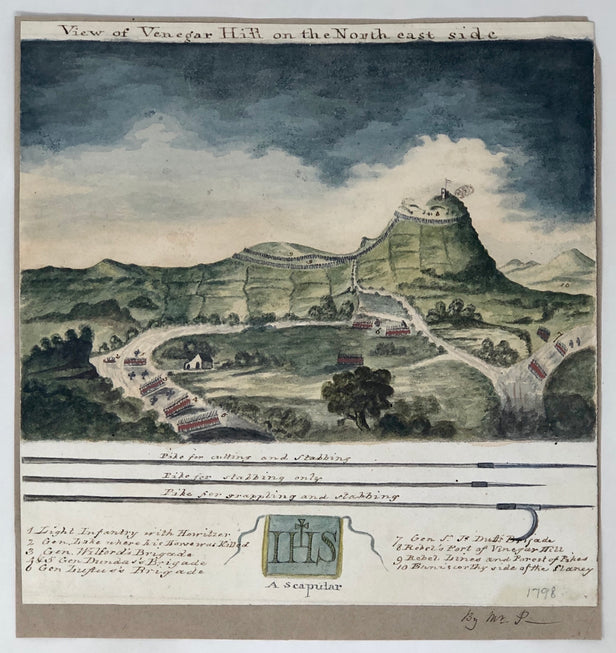 View of Venegar Hill on the North east side
Pike for cutting and stabbing
Pike for stabbing only
Pike for grappling and stabbing
1 Light Infantry with Howitzer
2 Gen. Lake where his Horse was Killed
3 Gen. Wilford's Brigade
4 & 5 Gen Dundas's Brigade
6 Gen Loftus's Brigade
IHS
A Scapular
7 Gen Sr. Js Duff's Brigade
8 Rebel's Fort of Vinegar Hill
9 Rebel Lines and Forest of Pikes
10 Bunisworthy side of the Slaney
1798
By Mr. P